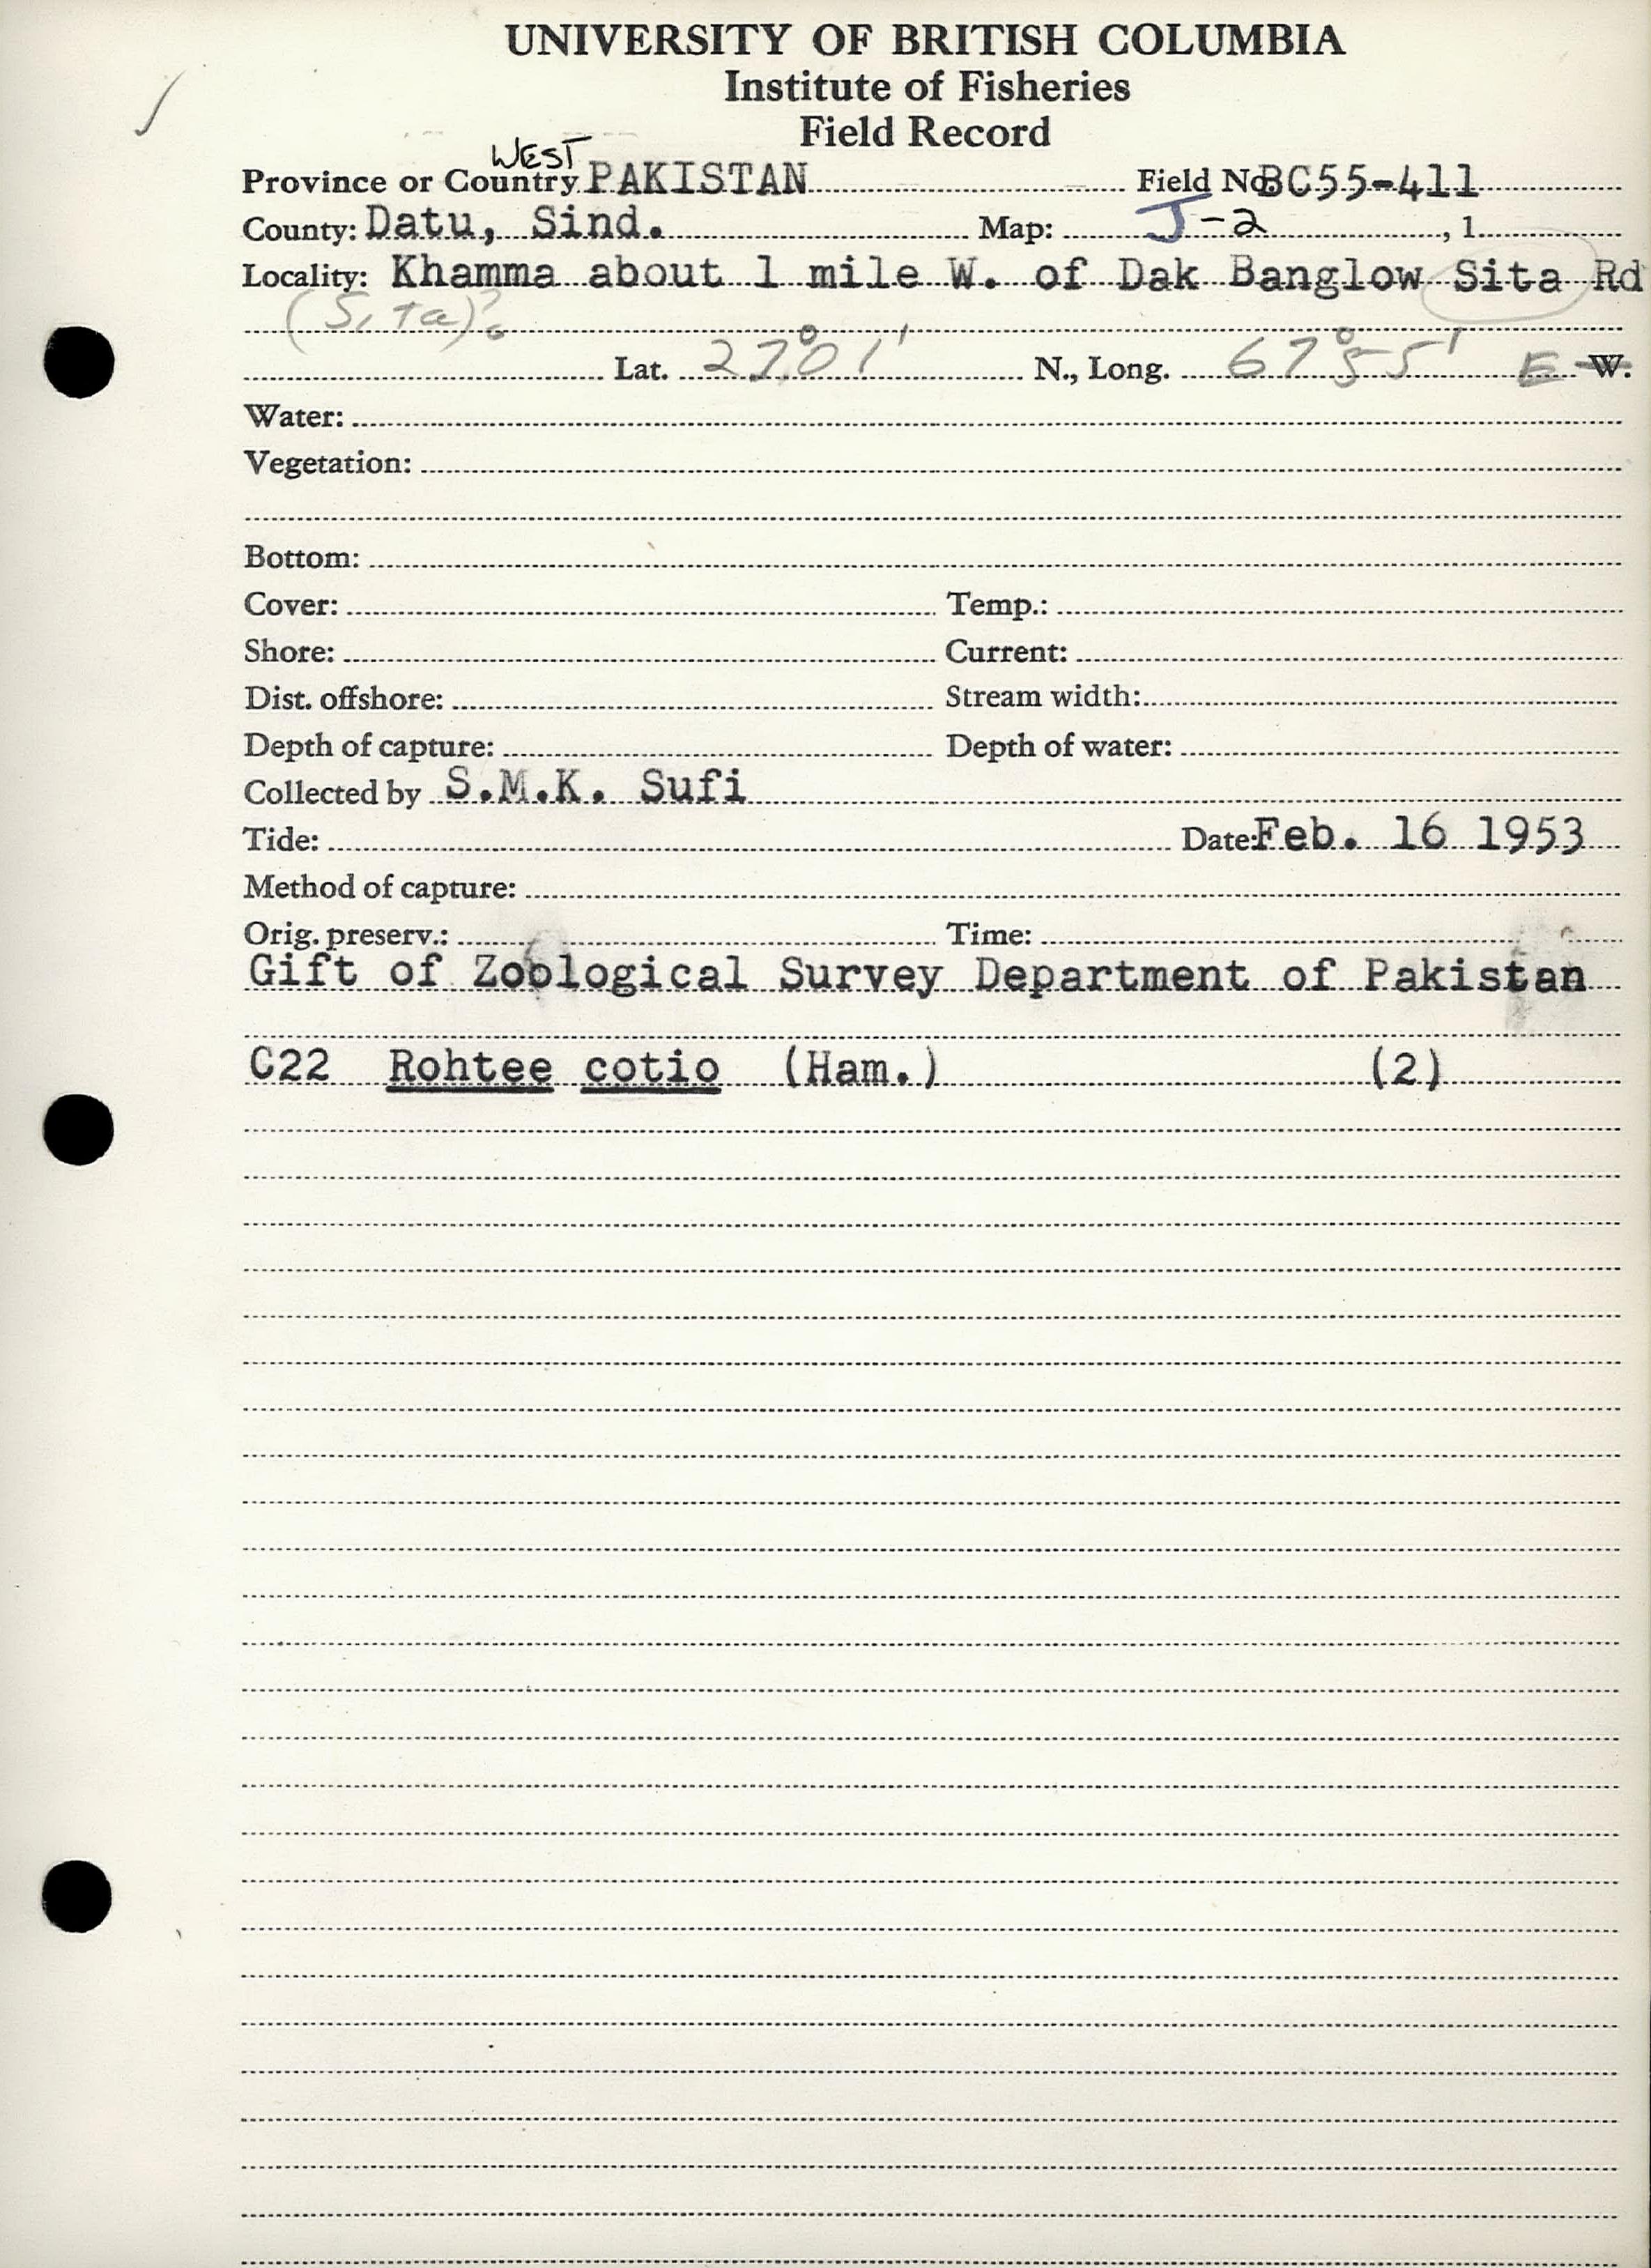 UNIVERSITY OF BRITISH COLUMBIA
Institute of Fisheries
Field Record
WEST
Province or Country PAKISTAN Field No. BC55-411
County: Datu, Sind. Map: J-2, 1
Locality: Khamma about 1 mile W. of Dak Banglow Sita Rd
(Sita)?
Lat. 27°01' N., Long. 67°55' E W.
Water:
Vegetation:
Bottom:
Cover: Temp.:
Shore: Current:
Dist. offshore: Stream width:
Depth of capture: Depth of water:
Collected by S.M.K. Sufi
Tide: Date: Feb. 16 1953
Method of capture:
Orig. preserv.: Time:
Gift of Zoological Survey Department of Pakistan
C22 Rohtee cotio (Ham.) (2)